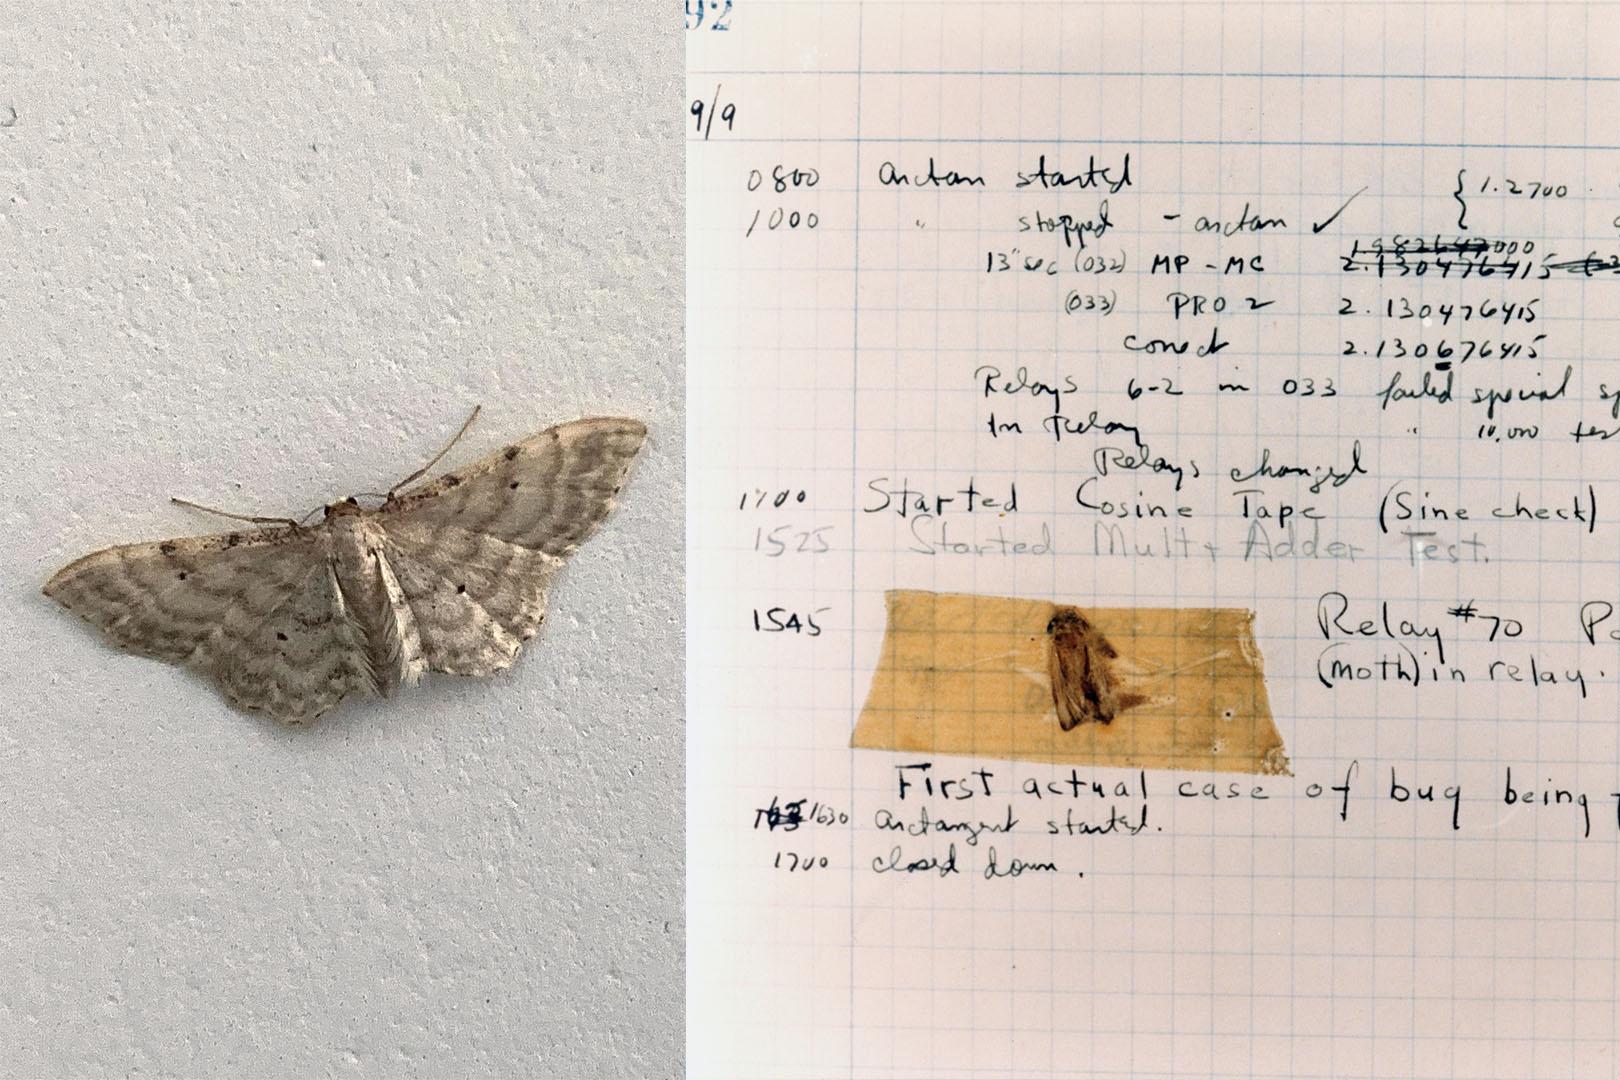 92
9/9
0800 arctan started { 1.2700
1000 " stopped - arctan ✓
13" sec (032) MP - MC 1.982647000 2.130476415
(033) PRO 2 2.130476415
correct 2.130676415
Relays 6-2 in 033 failed special
In Relay " 10,000
Relays changed
1100 Started Cosine Tape (Sine check)
1525 Started Mult + Adder Test.
1545 Relay #70
(moth) in relay.
First actual case of bug being
1630 arctangent started.
1700 closed down.